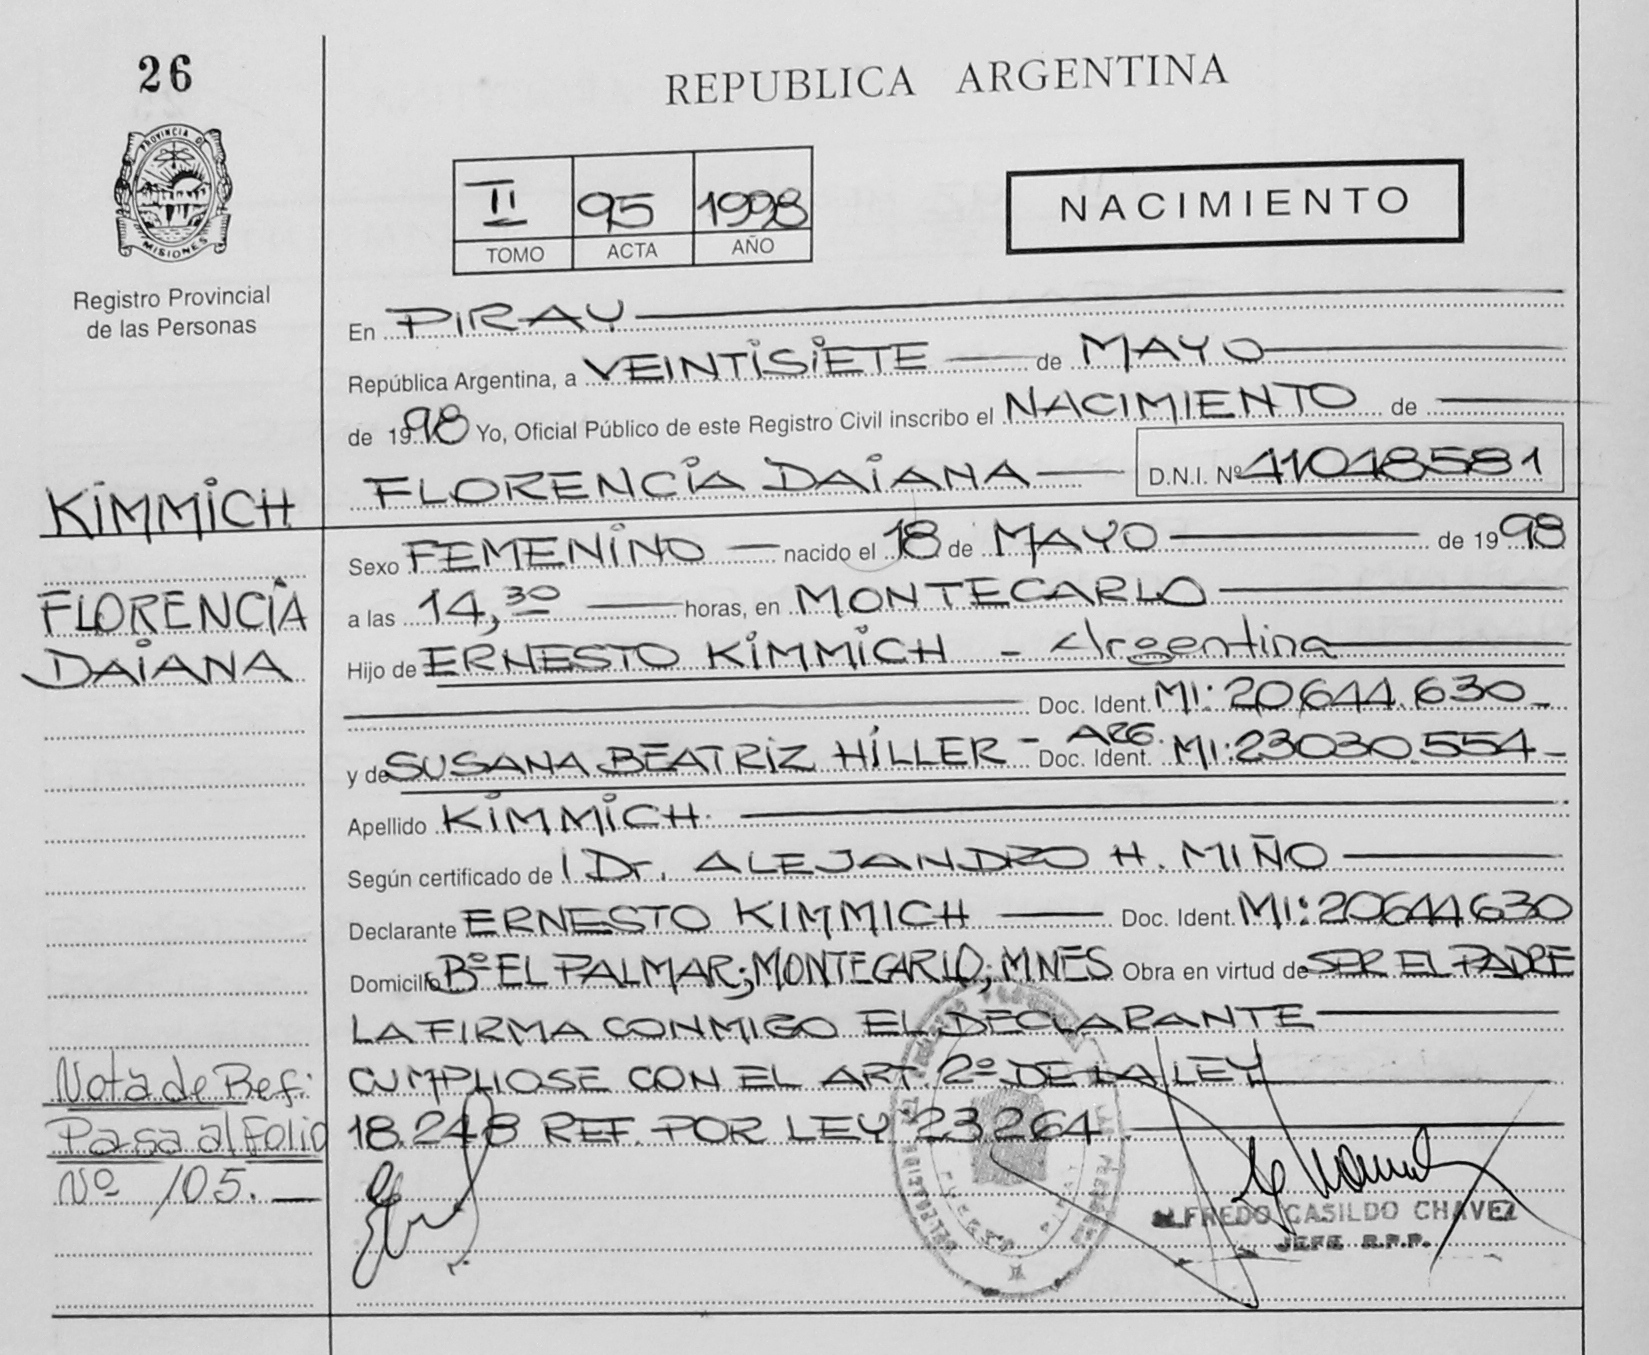 26
REPUBLICA ARGENTINA
PROVINCIA D
MISIONES
Registro Provincial
de las Personas
II 95 1998
TOMO ACTA AÑO
NACIMIENTO
En PIRAY
República Argentina, a VEINTISIETE de MAYO
de 1998 Yo, Oficial Público de este Registro Civil inscribo el NACIMIENTO de
FLORENCIA DAIANA D.N.I. Nº 41048581
KIMMICH
FLORENCIA
DAIANA
Sexo FEMENINO nacido el 18 de MAYO de 1998
a las 14,30 horas, en MONTECARLO
Hijo de ERNESTO KIMMICH - Argentina
Doc. Ident. MI: 20644.630
y de SUSANA BEATRIZ HILLER - ARG. Doc. Ident. MI: 23030.554
Apellido KIMMICH
Según certificado de l Dr. ALEJANDRO H. MIÑO
Declarante ERNESTO KIMMICH Doc. Ident. MI: 20644630
Domicilio Bº EL PALMAR; MONTECARLO; MNES Obra en virtud de SER EL PADRE
LA FIRMA CONMIGO EL DECLARANTE
CUMPLIOSE CON EL ART. 2º DE LA LEY
18.248 REF. POR LEY 23264
Nota de Ref:
Pasa al Folio
Nº 105.
ALFREDO CASILDO CHAVEZ
JEFE R.P.P.